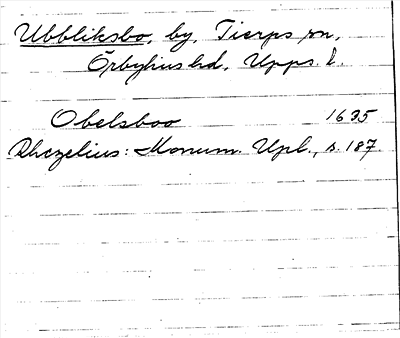 Ubbliksbo, by, Tierps sn,
Örbyhus hd, Upps. l.
Obelsboo 1635
Rhezelius: Monum. Upl., s. 187.